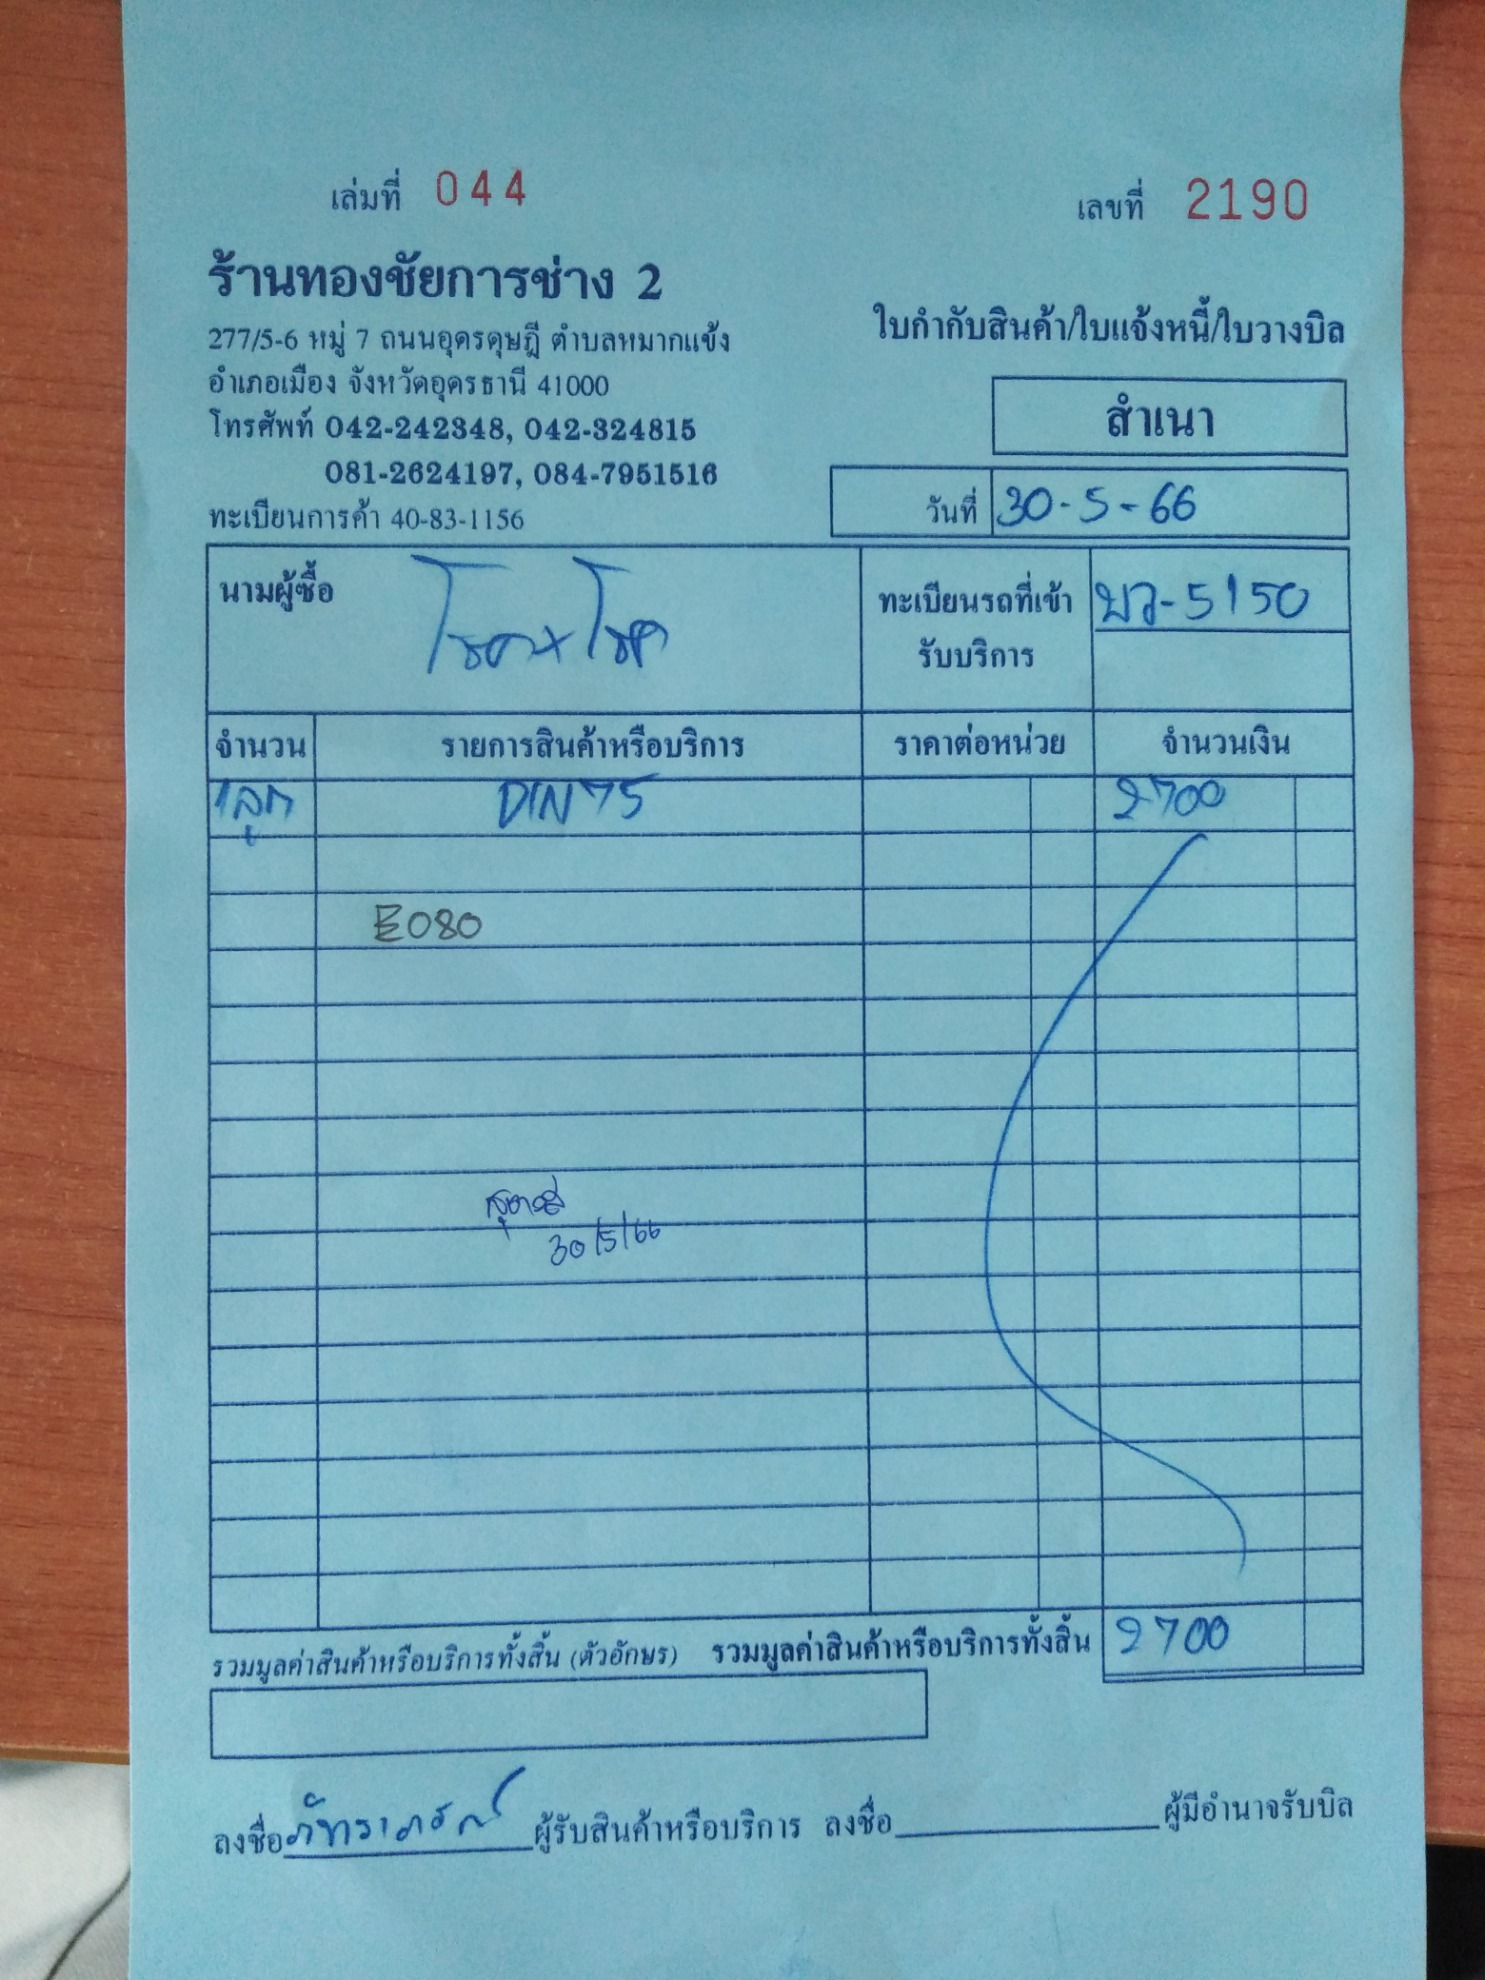 เล่มที่ 044 เลขที่ 2190
ร้านทองชัยการช่าง 2
277/5-6 หมู่ 7 ถนนอุดรดุษฎี ตำบลหมากแข้ง
อำเภอเมือง จังหวัดอุดรธานี 41000
โทรศัพท์ 042-242348, 042-324815
081-2624197, 084-7951516
ทะเบียนการค้า 40-83-1156
ใบกำกับสินค้า/ใบแจ้งหนี้/ใบวางบิล
สำเนา
วันที่ 30-5-66
นามผู้ซื้อ โชค+โชค
ทะเบียนรถที่เข้า
รับบริการ
บว-5150
จำนวน รายการสินค้าหรือบริการ ราคาต่อหน่วย จำนวนเงิน
1ลูก DIN75 2700
E080
30/5/66
รวมมูลค่าสินค้าหรือบริการทั้งสิ้น (ตัวอักษร) รวมมูลค่าสินค้าหรือบริการทั้งสิ้น 2700
ลงชื่อ ภัทราภรณ์ ผู้รับสินค้าหรือบริการ ลงชื่อ ผู้มีอำนาจรับบิล